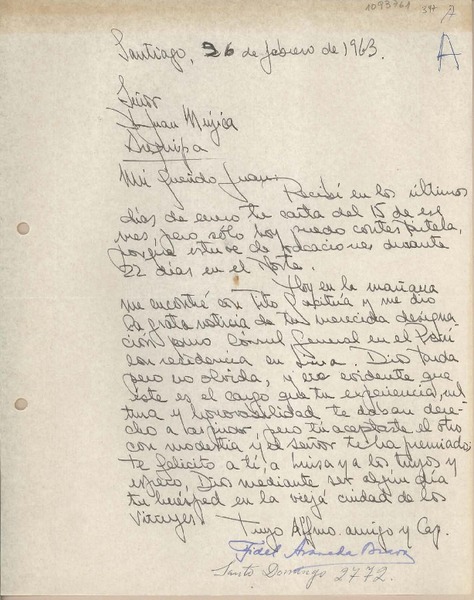 1093761 344
A
Santiago, 26 de febrero de 1963.
Señor
D Juan Mujica
Arequipa
Mi querido Juan:
Recibí en los últimos
días de enero tu carta del 15 de ese
mes, pero sólo hoy puedo contestártela,
porque estuve de vacaciones durante
22 días en el Norte.
Hoy en la mañana
me encontré con Tito y me dio
la grata noticia de tu merecida designa
ción como Cónsul General en el Perú
con residencia en Lima. Dios tarda
pero no olvida, y era evidente que
éste es el cargo que tu experiencia, cul
tura y honorabilidad te daban dere-
cho a alcanzar, pero tú aceptaste el otro
con modestia y el señor te ha premiado;
te felicito a ti, a Luisa y a los tuyos y
espero, Dios mediante ser algún día
tu huésped en la vieja ciudad de los
Virreyes.
Tuyo Affmo. amigo y Cap.
Fidel Araneda Bravo
Santo Domingo 2772.